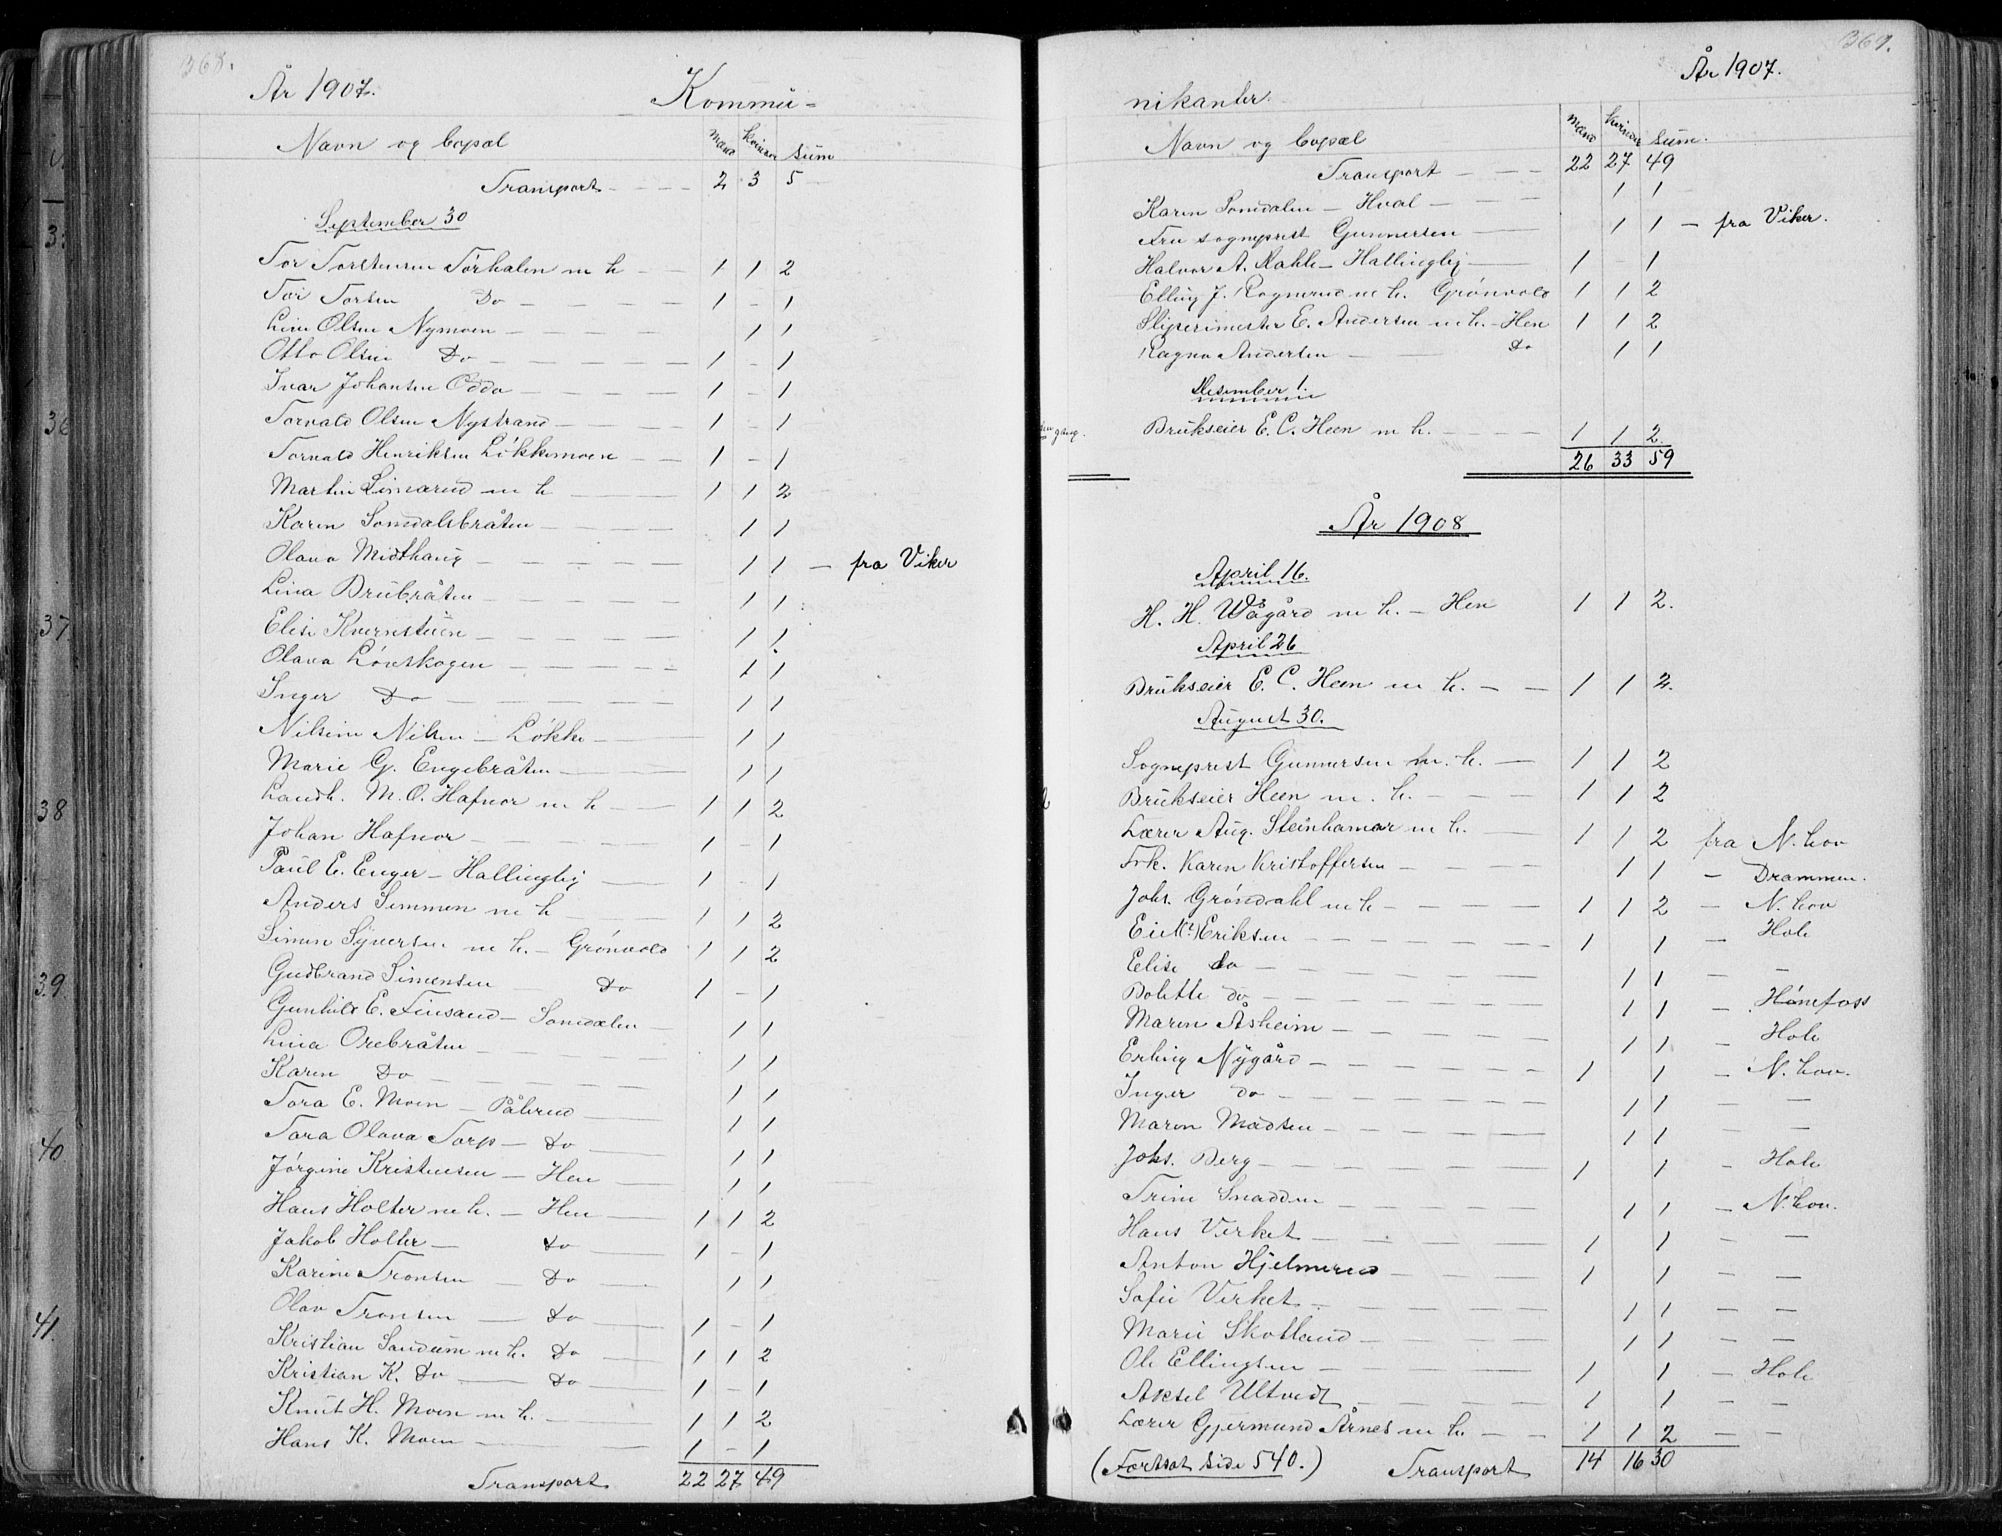 368.
År 1907. Kommu-
Navn og bopæl Mænd Kvinner Sum
Transport - - - - 2 3 5
September 30
Tor Torstensen Torhalen m h - - 1 1 2
Tor Torsen Do - - - - 1 - 1
Line Olsen Nymoen - - - - 1 1
Otto Olsen Do - - - - 1 - 1
Ivar Johansen Odda - - - 1 - 1
Torvald Olsen Nystrand - - - 1 - 1
Torvald Henriksen Løkkemoen - - 1 - 1
Martin Limarud m h - - - 1 1 2
Karen Somdalsbråten - - - 1 1
Olava Midthaug - - - - 1 1 - fra Viker
Lina Brubråten - - - - 1 1
Elise Kvernstuen - - - - 1 1
Olava Løvskogen - - - - 1 1
Inger Do - - - - 1 1
Nilsine Nilsen - Løkke - - - 1 1
Marie G. Engebråten - - - 1 1
Landh. M. O. Hafnor m h - - 1 1 2
Johan Hafnor - - - - 1 - 1
Paul E. Enger - Hallingby - 1 - 1
Anders Semmen m h - - 1 1 2
Simen Syversen m h. - Grønvold 1 1 2
Gudbrand Simensen - Do 1 - 1
Gunhild E. Finsand - Somdalen - 1 1
Lina Orebråten - - - - 1 1
Karen Do - - - - 1 1
Tora E. Moen - Pålerud - 1 1
Tora Olava Torp - Do - 1 1
Jørgine Kristensen - Hen - 1 1
Hans Holter m h. - Hen - 1 1 2
Jakob Holter - Do - 1 - 1
Karine Tronsen - Do - 1 1
Olav Tronsen - Do - 1 - 1
Kristian Sandum m h. Do - 1 1 2
Kristian K. Do - Do - 1 - 1
Knut H. Moen m h. - 1 1 2
Hans K. Moen - 1 - 1
Transport 22 27 49
369.
År 1907.
nikanter.
Navn og bopæl Mænd Kvinner Sum.
Transport - - - 22 27 49
Karen Somdalen - Hval - - 1 1
Fru sogneprest Gunnersen - 1 1 - fra Viker.
Halvor A. Rahle - Hallingby - 1 - 1
Elling J. Rognerud m h. Grønvold 1 1 2
Sliperimester E. Andersen m h. - Hen 1 1 2
Ragna Andersen - Do 1 1
Desember 1.
Brukseier E. C. Heen m h. - - - 1 1 2
26 33 59
År 1908
April 16.
H. H. Wågård m h. - Hen 1 1 2.
April 26
Brukseier E. C. Heen m h. - - 1 1 2.
August 30.
Sogneprest Gunnersen m. h. - 1 1 2
Brukseier Heen m. h. - - - 1 1 2
Lærer Aug. Steinhamar m h. - - 1 1 2 fra N. hov
Frk. Karen Kristoffersen - - - 1 1 - Drammen.
Johs. Grøndahl m h - - - - 1 1 2 - N. hov
Eirik(?) Eriksen - - - - 1 1 - Hole
Elise do - - - - 1 1 - -
Bolette do - - - - 1 1 - Hønefoss
Maren Åsheim - - - - 1 1 - Hole
Erling Nygård - - - - 1 1 - N. hov.
Inger do - - - - 1 1 - -
Maren Madsen - - - - 1 1 -
Johs. Berg - - - - 1 1 - Hole
Trine Snadden - - - - 1 1 - N. hov.
Hans Virket - - - - 1 1 - -
Anton Hjelmerud - - - 1 1 - -
Sofie Virket - - - - 1 1 - -
Marie Skotland - - - - 1 1 - -
Ole Ellingsen - - - - 1 1 - Hole
Aksel Ultvedt - - - - 1 1 - -
Lærer Gjermund Årnes m h. - - 1 1 2 - -
(Fortsat side 540.) Transport 14 16 30